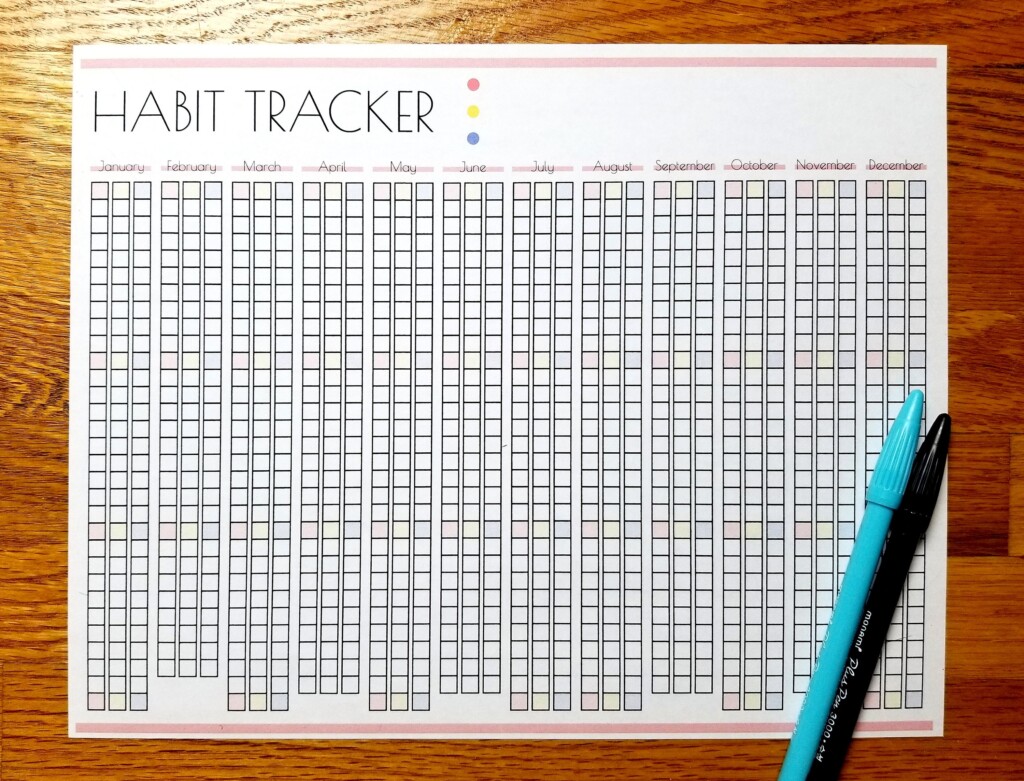 HABIT TRACKER
January February March April May June July August September October November December
monami Plus Pen 3000